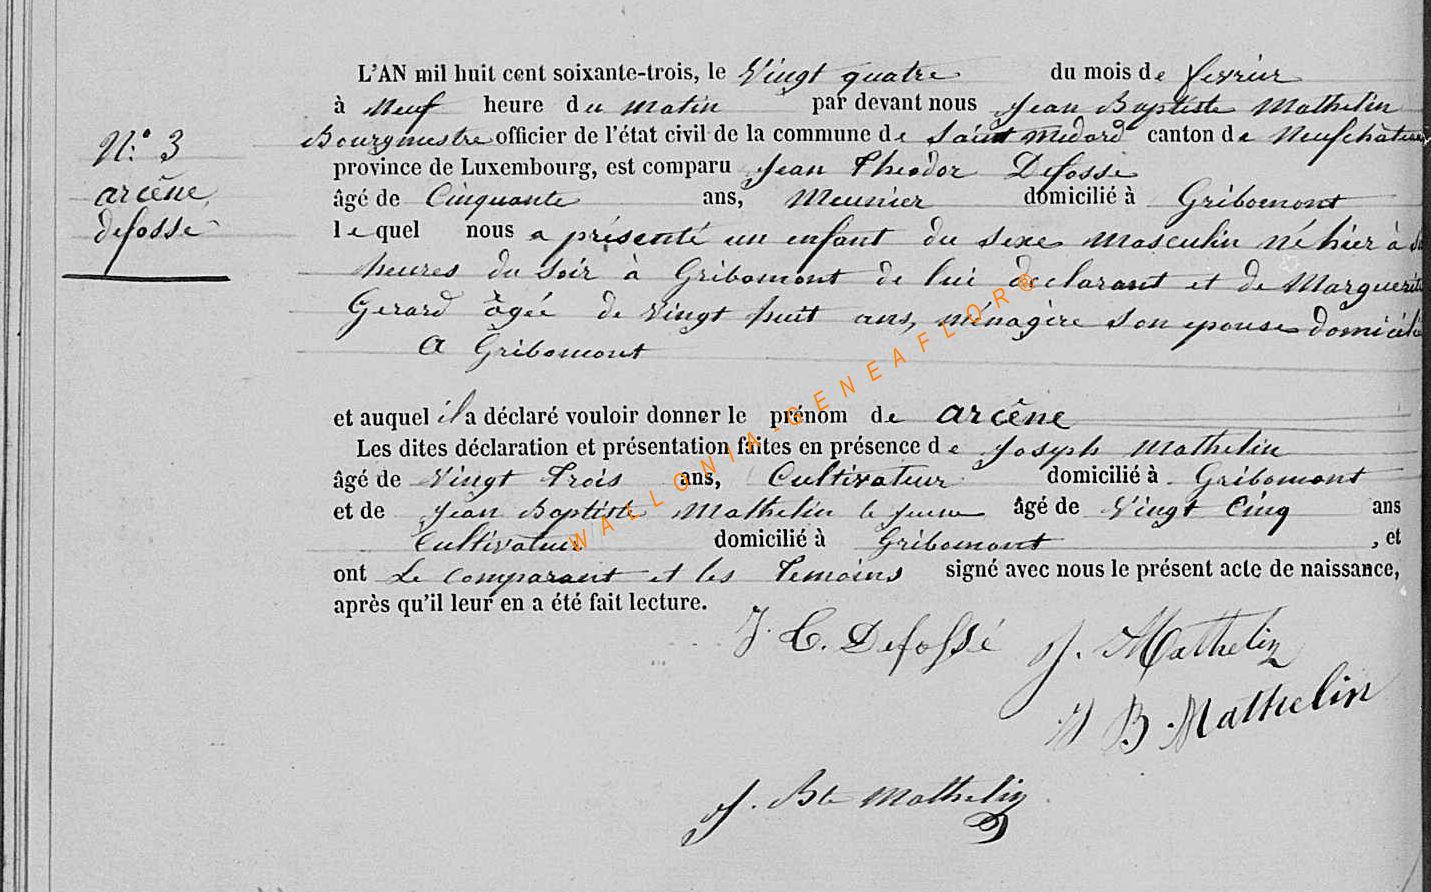 L'AN mil huit cent soixante-trois, le Vingt quatre du mois de fevrier
à Neuf heure du matin par devant nous Jean Baptiste Mathelin
Bourgmestre officier de l'état civil de la commune de Saint Medard canton de Neufchâteau
N.° 3
province de Luxembourg, est comparu Jean Theodor Defossé
arcêne
âgé de Cinquante ans, Meunier domicilié à Gribomont
defossé
lequel nous a présenté un enfant du sexe masculin né hier à
heures du soir à Gribomont de lui declarant et de Marguerite
Gerard âgée de Vingt huit ans, ménagère son epouse
A Gribomont
et auquel il a déclaré vouloir donner le prénom de arcêne
Les dites déclaration et présentation faites en présence de Joseph Mathelin
âgé de Vingt Trois ans, Cultivateur domicilié à Gribomont
et de Jean Baptiste Mathelin le jeune âgé de Vingt Cinq ans
Cultivateur domicilié à Gribomont, et
ont Le comparant et les Temoins signé avec nous le présent acte de naissance,
après qu'il leur en a été fait lecture.
J. T. Defossé J. Mathelin
J B Mathelin
J. Bte Mathelin
WALLONIA-GENEAFLOR®